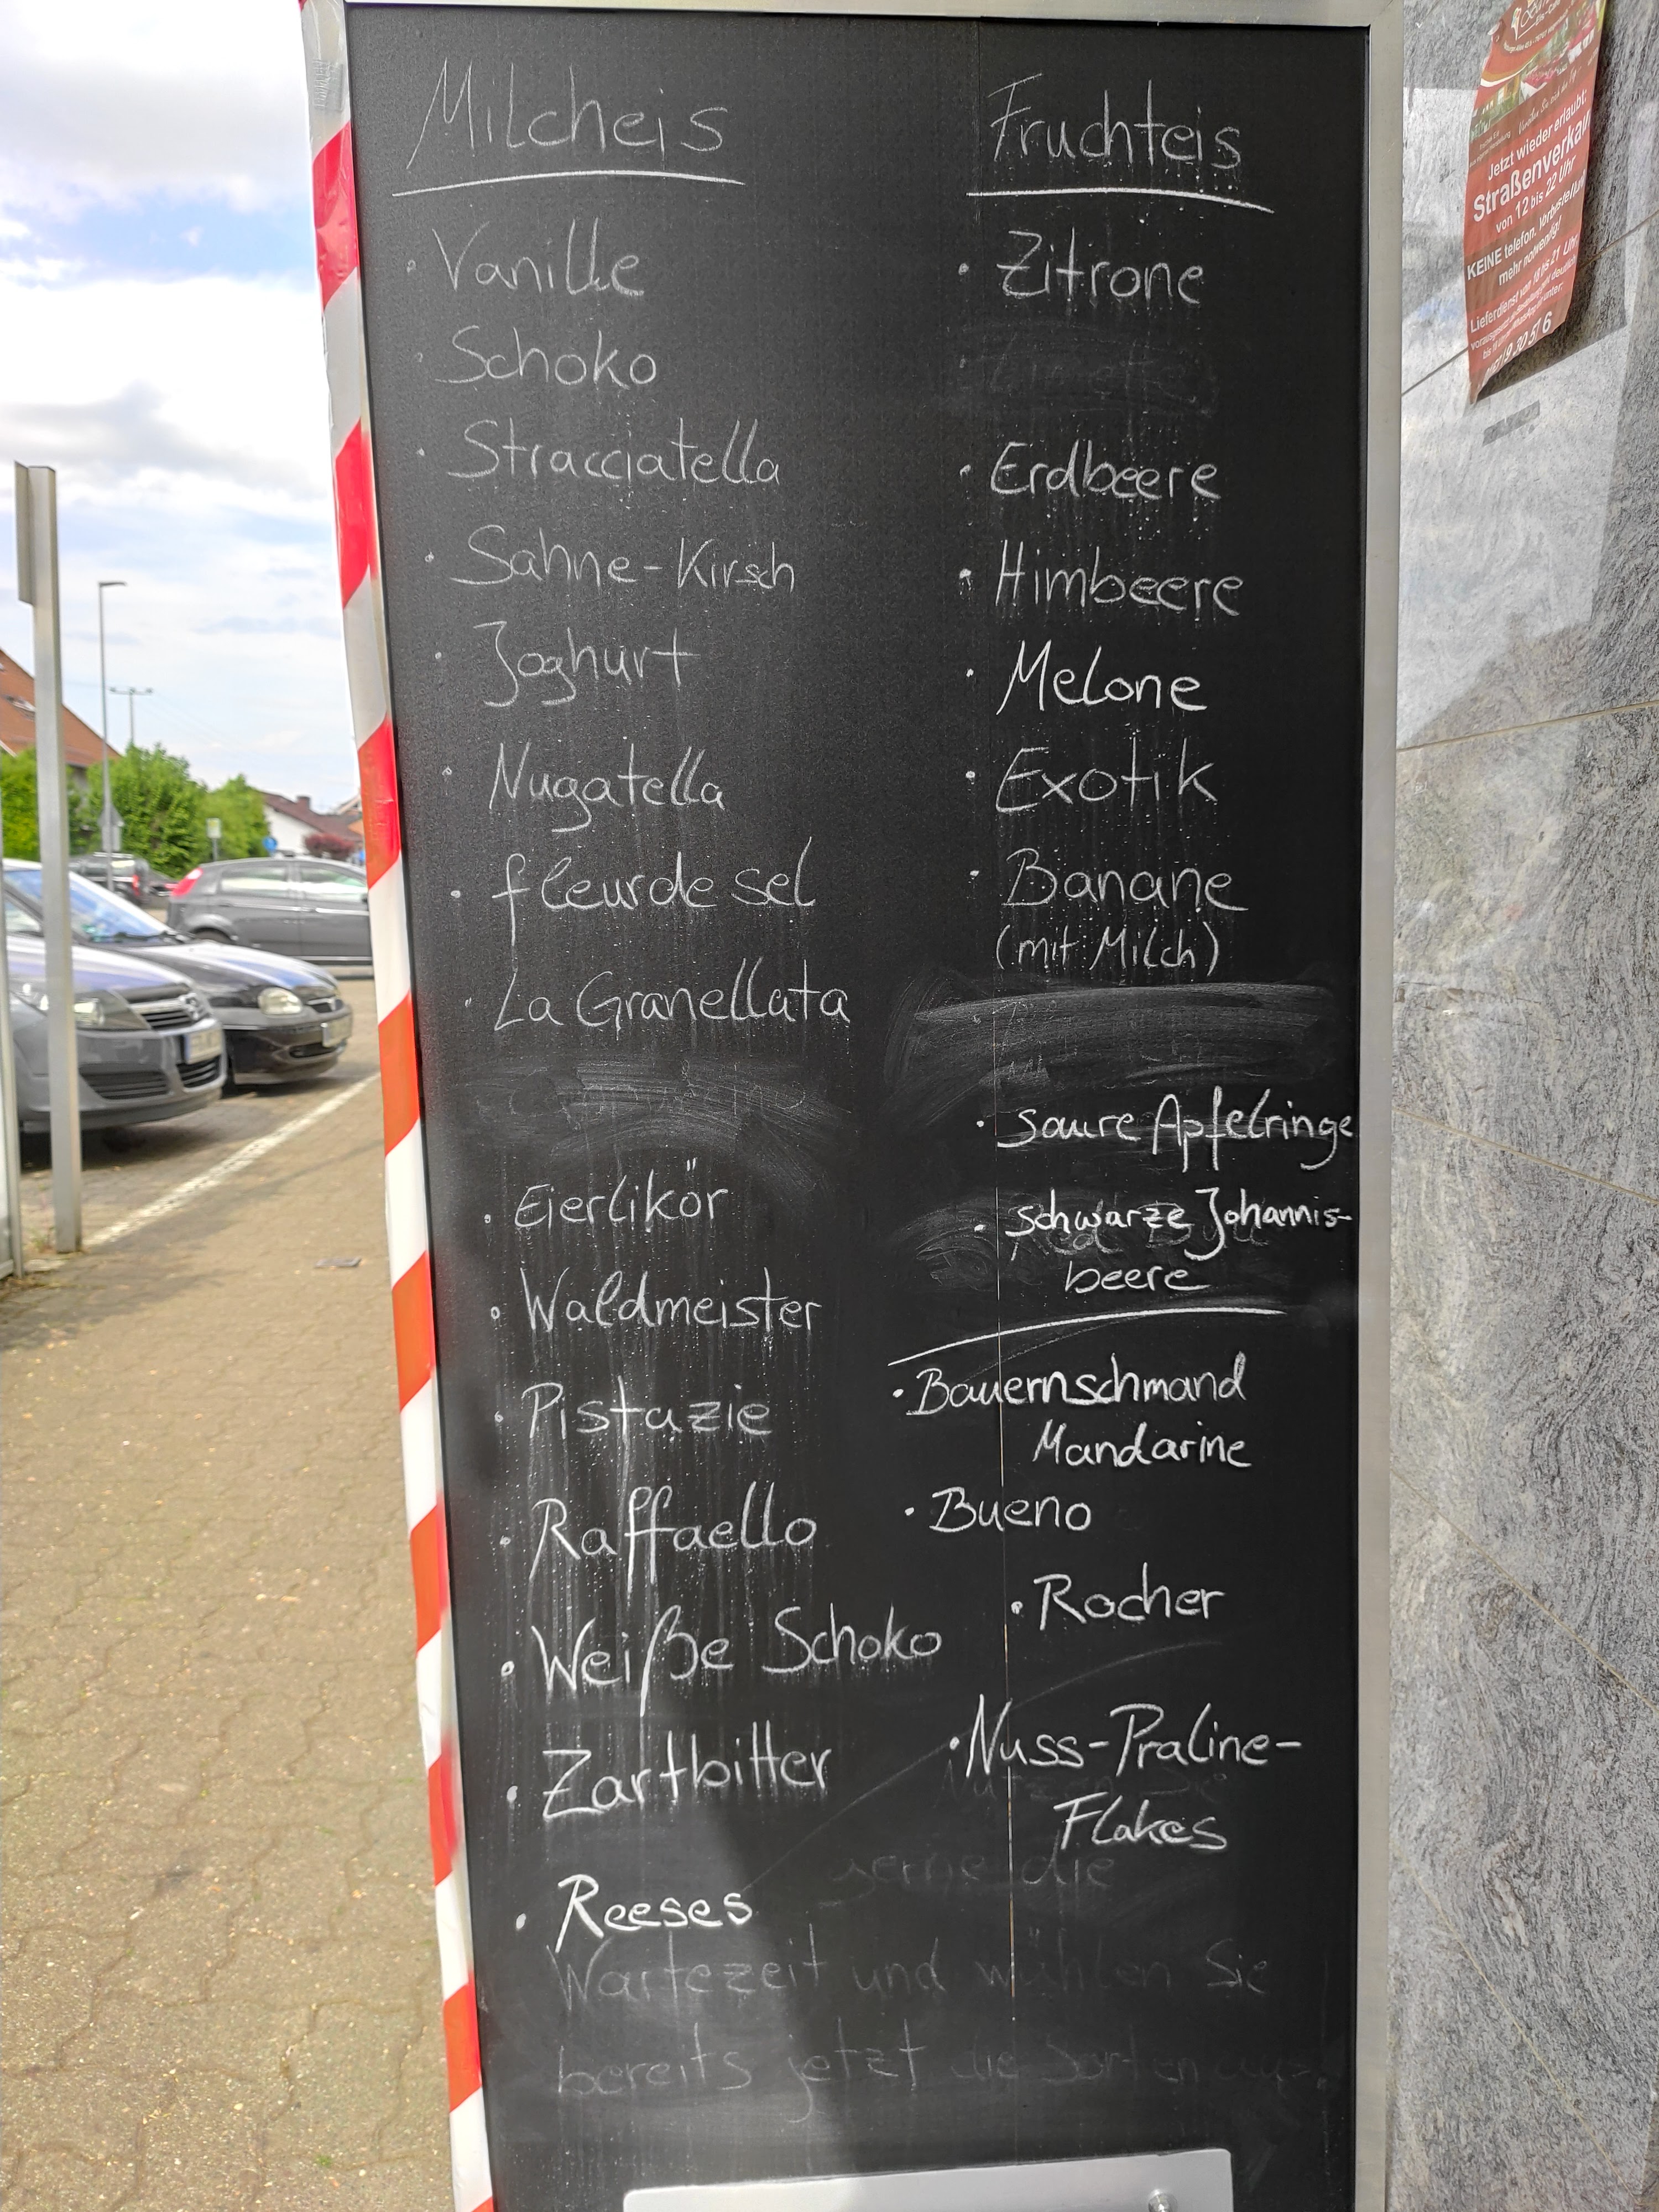 Milcheis
· Vanille
· Schoko
· Stracciatella
· Sahne-Kirsch
· Joghurt
· Nugatella
· fleur de sel
· La Granellata
· Eierlikör
· Waldmeister
· Pistazie
· Raffaello
· Weiße Schoko
· Zartbitter
· Reeses
Fruchteis
· Zitrone
· Erdbeere
· Himbeere
· Melone
· Exotik
· Banane
(mit Milch)
· saure Apfelringe
· schwarze Johannis-
beere
· Bauernschmand
Mandarine
· Bueno
· Rocher
· Nuss-Praline-
Flakes
gerne die
Wartezeit und wählen Sie
bereits jetzt die Sorten aus.
Jetzt wieder erlaubt:
Straßenverkauf
von 12 bis 22 Uhr
KEINE telefon. Vorbestellung
mehr notwendig!
Lieferdienst von 18 bis 21 Uhr